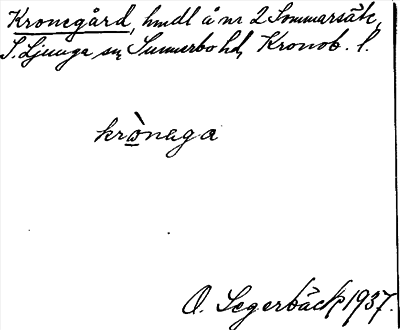 Kronegård, hmdl å nr 2 Sommarsäk,
S. Ljunga sn, Sunnerbo hd, Kronob. l.
krònaga
O. Segerbäck 1937.